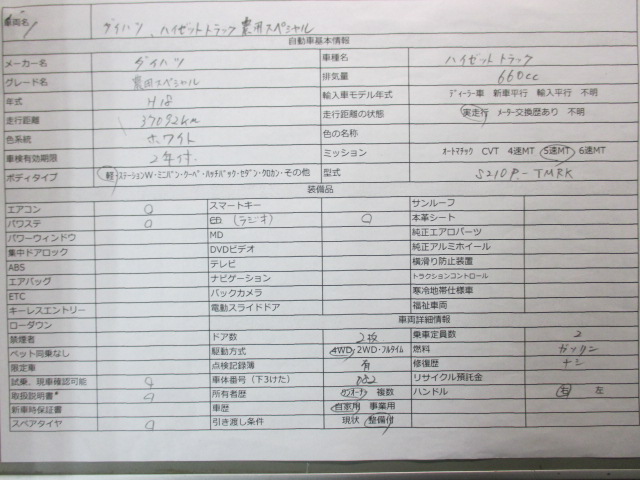 車両名 ダイハツ、ハイゼットトラック 農用スペシャル
自動車基本情報
メーカー名 ダイハツ 車種名 ハイゼットトラック
グレード名 農用スペシャル 排気量 660cc
年式 H18 輸入車モデル年式 ディーラー車 新車平行 輸入平行 不明
走行距離 37092km 走行距離の状態 実走行 メーター交換歴あり 不明
色系統 ホワイト 色の名称
車検有効期限 2年付. ミッション オートマチック CVT 4速MT 5速MT 6速MT
ボディタイプ 軽・ステーションW・ミニバン・クーペ・ハッチバック・セダン・クロカン・その他 型式 S210P-TMRK
装備品
エアコン ○ スマートキー サンルーフ
パワステ ○ (ラジオ) ○ 本革シート
パワーウィンドウ MD 純正エアロパーツ
集中ドアロック DVDビデオ 純正アルミホイール
ABS テレビ 横滑り防止装置
エアバッグ ナビゲーション トラクションコントロール
ETC バックカメラ 寒冷地帯仕様車
キーレスエントリー 電動スライドドア 福祉車両
ローダウン 車両詳細情報
禁煙者 ドア数 2枚 乗車定員数 2
ペット同乗なし 駆動方式 4WD・2WD・フルタイム 燃料 ガソリン
限定車 点検記録簿 有 修復歴 ナシ
試乗、現車確認可能 ○ 車体番号(下3けた) リサイクル預託金
取扱説明書* ○ 所有者歴 ワンオーナー 複数 ハンドル 右 左
新車時保証書 車歴 自家用 事業用
スペアタイヤ ○ 引き渡し条件 現状 整備付